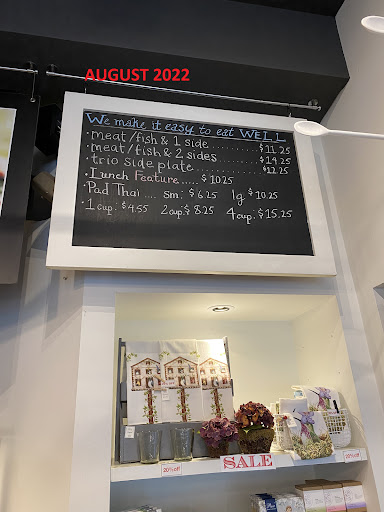 AUGUST 2022
We make it easy to eat WELL
· meat/fish & 1 side.......... $11.25
· meat/fish & 2 sides........ $14.25
· trio side plate.............. $12.25
· Lunch Feature..... $10.25
· Pad Thai .... sm: $6.25 lg $10.25
· 1 cup: $4.55 2 cup: $8.25 4 cup: $15.25
20% off
SALE
20% off